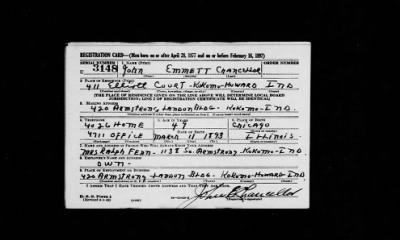 REGISTRATION CARD—(Men born on or after April 28, 1877 and on or before February 16, 1897)
SERIAL NUMBER 1. NAME (Print) ORDER NUMBER
3148 John EMMETT Chancellor
2. PLACE OF RESIDENCE (Print)
411 Elliott COURT - Kokomo - Howard IND
[THE PLACE OF RESIDENCE GIVEN ON THE LINE ABOVE WILL DETERMINE LOCAL BOARD
JURISDICTION; LINE 2 OF REGISTRATION CERTIFICATE WILL BE IDENTICAL]
3. MAILING ADDRESS
420 Armstrong Landon BLDG. - Kokomo - IND.
4. TELEPHONE 5. AGE IN YEARS 6. PLACE OF BIRTH
4026 Home 49 Chicago
DATE OF BIRTH
4711 OFFICE March 11 1893 Illinois
7. NAME AND ADDRESS OF PERSON WHO WILL ALWAYS KNOW YOUR ADDRESS
Mrs Ralph Fenn - 1138 So. Armstrong - Kokomo - IND
8. EMPLOYER'S NAME AND ADDRESS
OWN -
9. PLACE OF EMPLOYMENT OR BUSINESS
420 Armstrong Landon BLDG - Kokomo - Howard IND
I AFFIRM THAT I HAVE VERIFIED ABOVE ANSWERS AND THAT THEY ARE TRUE.
D. S. S. Form 1
John E Chancellor